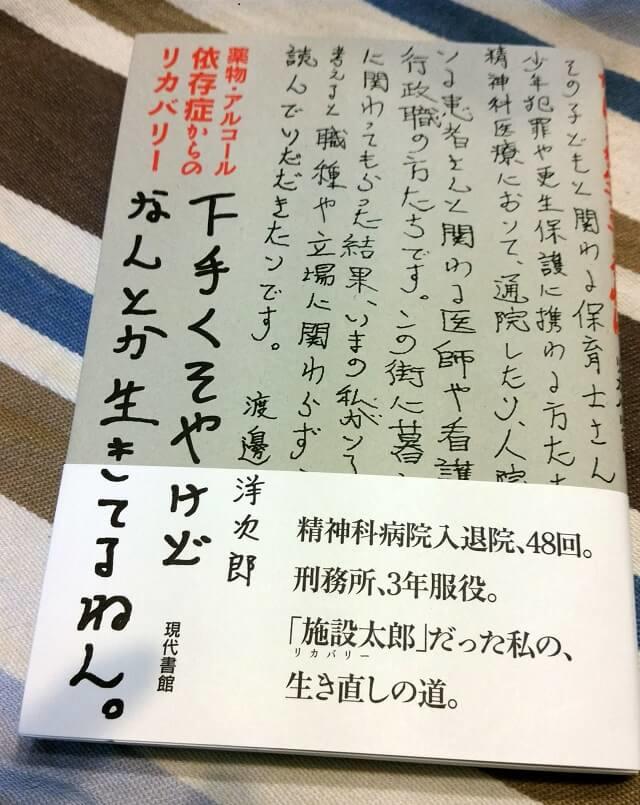 薬物・アルコール
依存症からの
リカバリー
下手くそやけど
なんとか生きてるねん。
渡邊洋次郎
現代書館
その子どもと関わる保育士さん
少年犯罪や更生保護に携わる方た
精神科医療において、通院したり、入院
いる患者さんと関わる医師や看護
行政職の方たちです。この街に暮
に関わってもらった結果、いまの私がいる
考えると職種や立場に関わらず
読んでいただきたいです。
精神科病院入退院、48回。
刑務所、3年服役。
「施設太郎」だった私の、
リカバリー
生き直しの道。